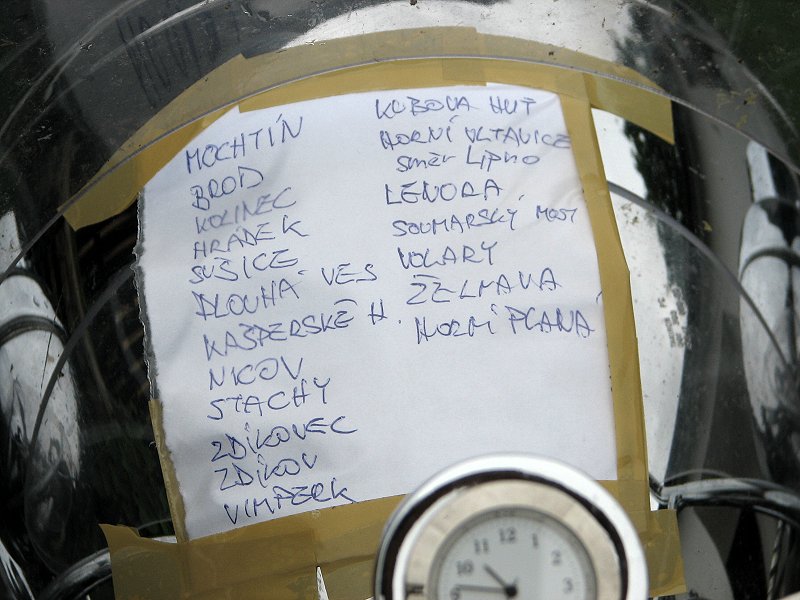 MOCHTÍN
BROD
KOLINEC
HRÁDEK
SUŠICE
DLOUHÁ VES
KAŠPERSKÉ H.
NICOV
STACHY
ZDÍKOVEC
ZDÍKOV
VIMPERK
KUBOVA HUŤ
HORNÍ VLTAVICE
směr Lipno
LENORA
SOUMARSKÝ MOST
VOLARY
ŽELNAVA
HORNÍ PLANÁ
10 11 12 1 2 3